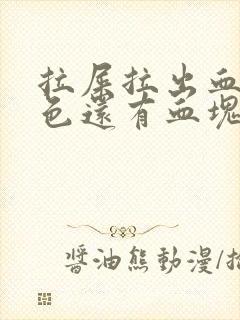 拉屎拉出血
色還有血塊
醬油熊動漫/